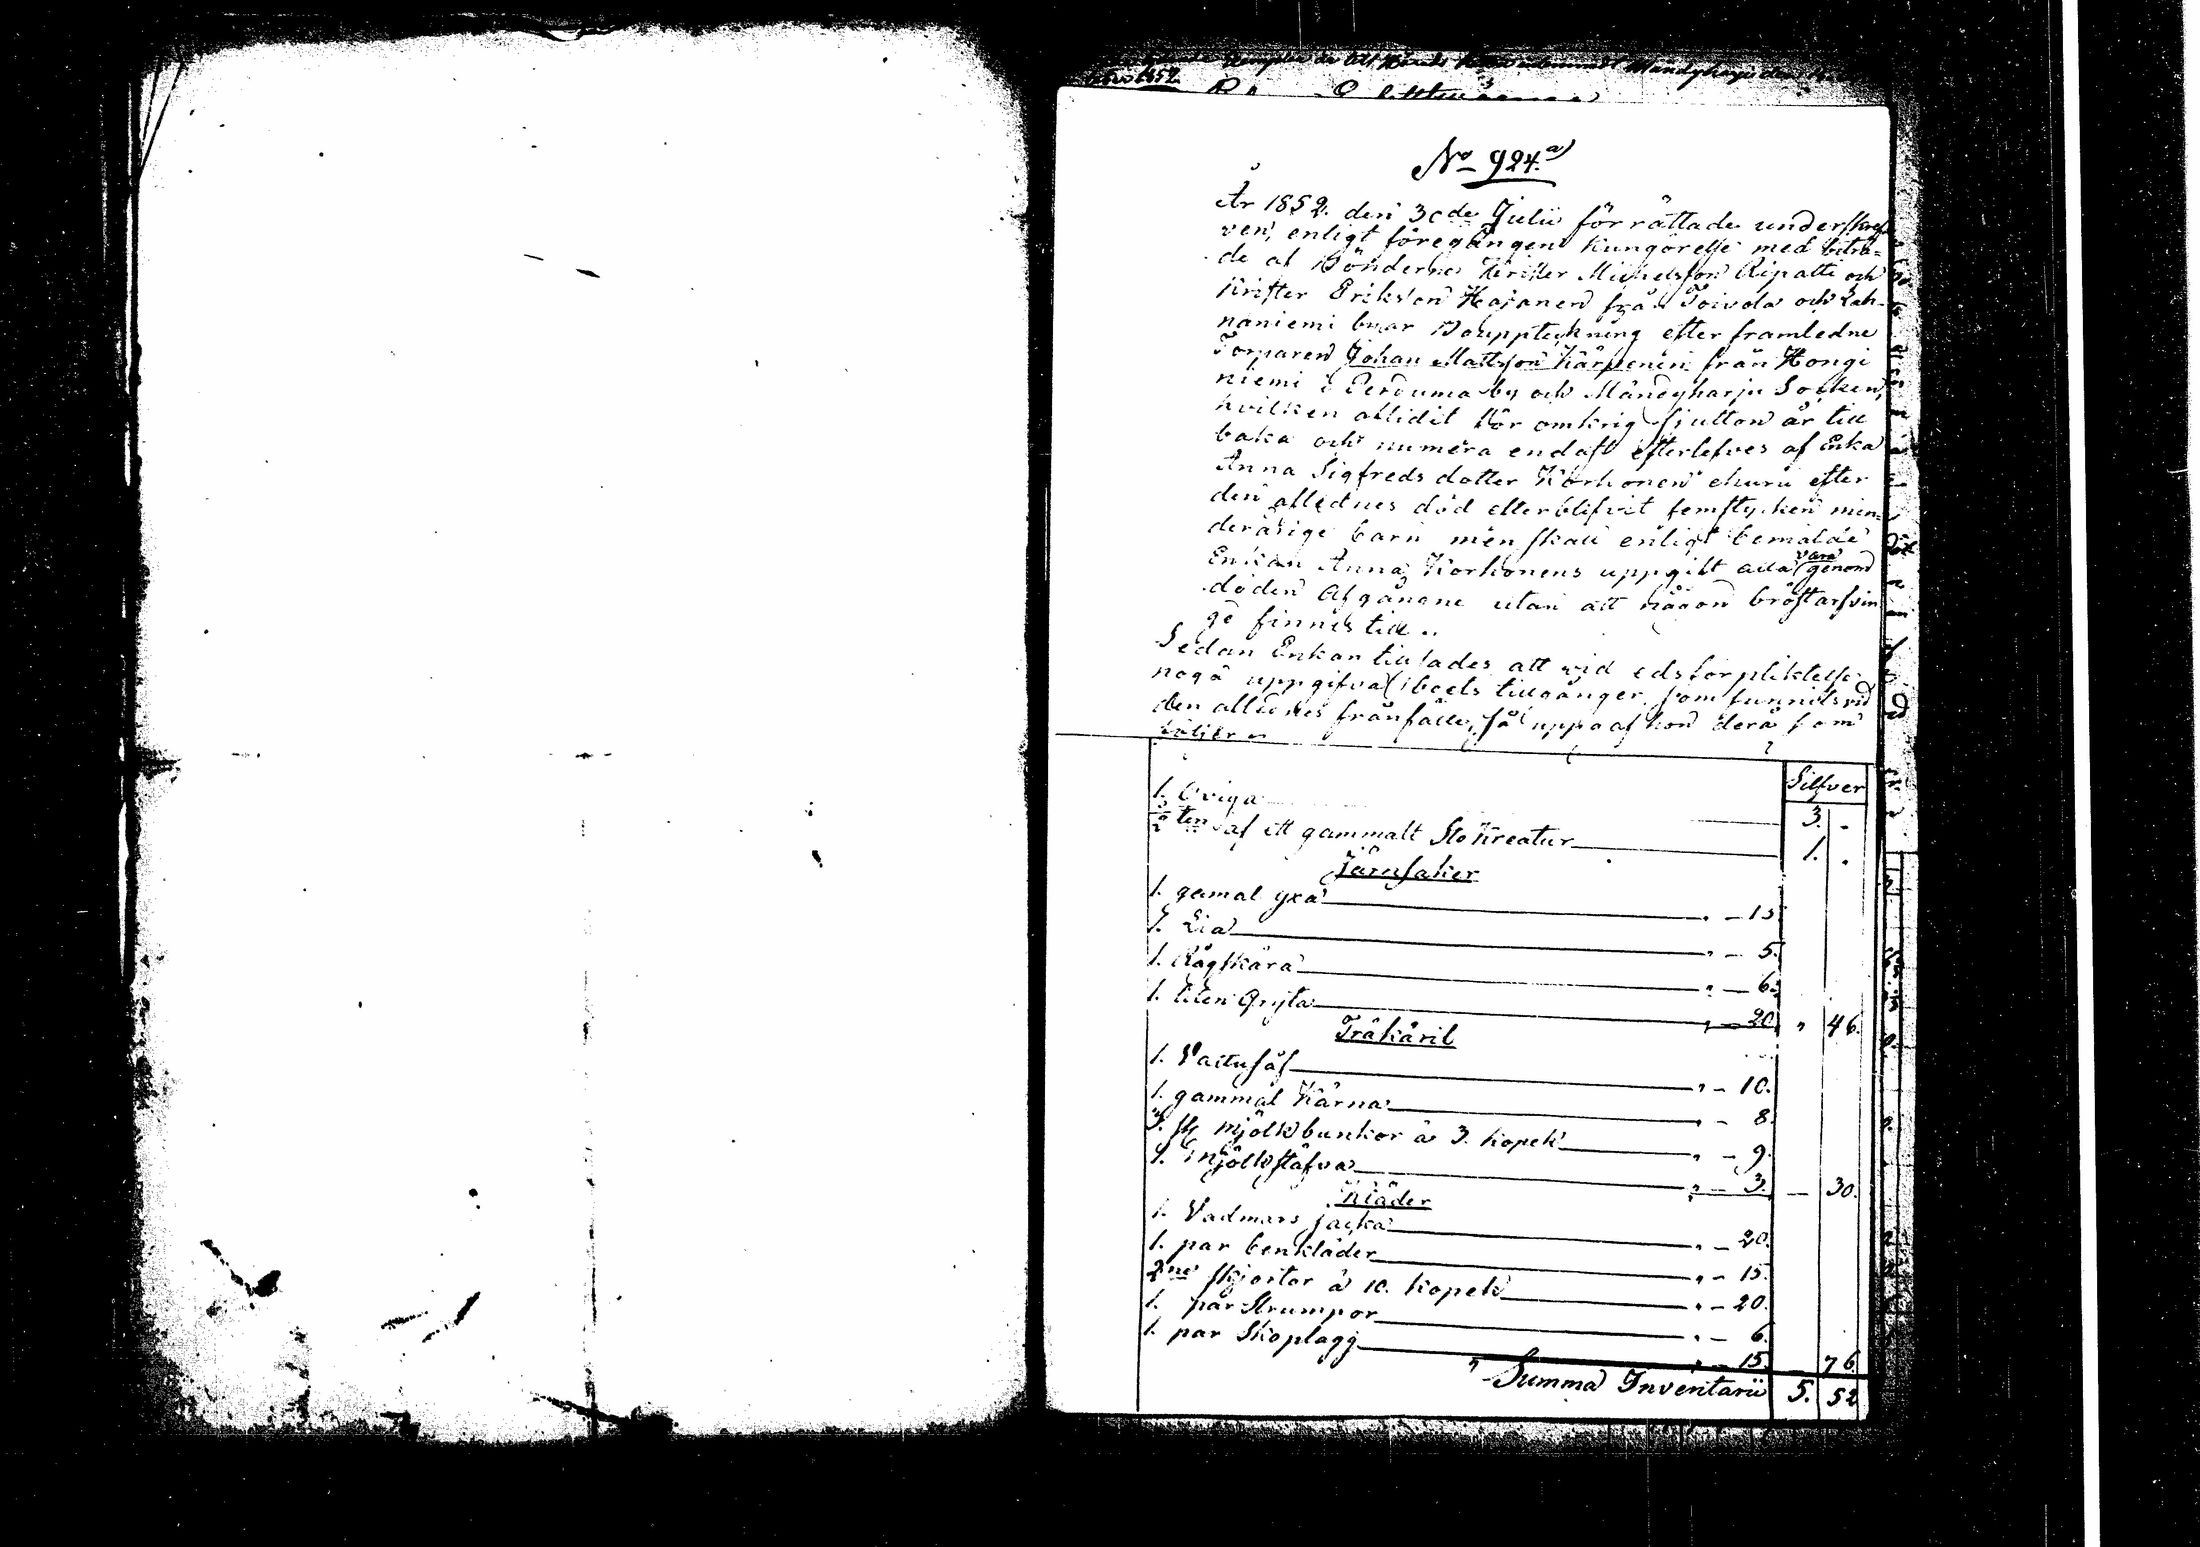 1852.
No 924.a)
År 1852. den 30de Julii förrättade underskref
ven, enligt föregången Kungörelse med biträ=
de af Bönderne Krister Michelsson Ripatti och
Krister Eriksson Hajanen från Toivola och Lah-
naniemi byar Bouppteckning efter framledne
Torparen Johan Mattsson Kärpenen från Hongi
niemi i Perduma by och Mändyharju Socken,
hvilken aflidit för omkrig sjutton år till
baka och numera endast efterlefves af Enka
Anna Sigfreds dotter Korhonen ehuru efter
den aflednes död efterblifvit femstycken min=
derårige barn men skall enligt bemälde
Enkan Anna Korhonens uppgift alla vara genom
döden afgångne utan att någon bröstarfvin
ge finnes till..
Sedan Enkan tillsades att vid edsförpliktelse
noga uppgifva boets tillgånger som funnits vid
den aflednes frånfälle, så uppgaf hon dera som
följer
Silfver
1. Qviga 3. -
ten af ett gammalt Sto Kreatur 1. .
Järnsaker
1. gamal yxa " - 15
1. Lia " - 5.
1. Rågskära " - 6.
1. liten Gryta " - 20. " 46.
Träkäril
1. Vattusås " - 10.
1. gammal Kärna " - 8.
3. st mjölkbunkor à 3. kopek " - 9.
1. mjölkstäfva " - 3. — 30.
Kläder
1. Vadmars jacka " - 20.
1. par benkläder " - 15.
2ne skjortor à 10. kopek " - 20.
1. par Strumpor " - 6.
1. par Skoplagg " - 15. — 76.
Summa Inventarii 5. 52